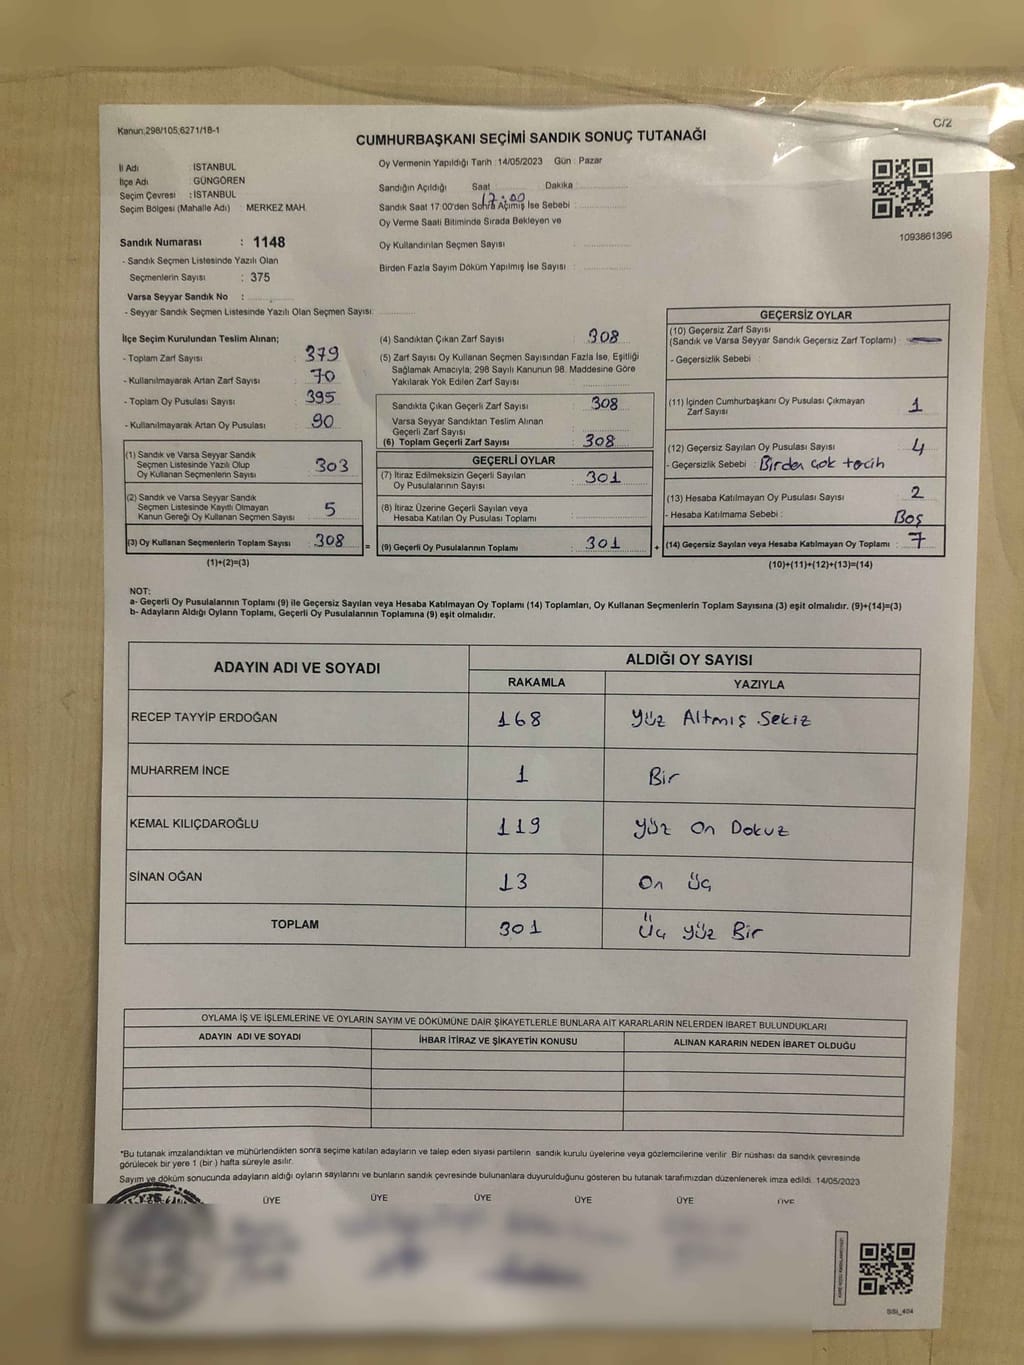 Kanun;298/105;6271/18-1
C/2
CUMHURBAŞKANI SEÇİMİ SANDIK SONUÇ TUTANAĞI
İl Adı : İSTANBUL
İlçe Adı : GÜNGÖREN
Seçim Çevresi : İSTANBUL
Seçim Bölgesi (Mahalle Adı) : MERKEZ MAH.
Oy Vermenin Yapıldığı Tarih : 14/05/2023 Gün : Pazar
Sandığın Açıldığı Saat 17:00 Dakika
Sandık Saat 17:00'den Sonra Açılmış İse Sebebi :
Oy Verme Saati Bitiminde Sırada Bekleyen ve
Oy Kullandırılan Seçmen Sayısı :
Birden Fazla Sayım Döküm Yapılmış İse Sayısı :
1093861396
Sandık Numarası : 1148
- Sandık Seçmen Listesinde Yazılı Olan
Seçmenlerin Sayısı : 375
Varsa Seyyar Sandık No :
- Seyyar Sandık Seçmen Listesinde Yazılı Olan Seçmen Sayısı:
İlçe Seçim Kurulundan Teslim Alınan;
- Toplam Zarf Sayısı : 379
- Kullanılmayarak Artan Zarf Sayısı : 70
- Toplam Oy Pusulası Sayısı : 395
- Kullanılmayarak Artan Oy Pusulası : 90
(1) Sandık ve Varsa Seyyar Sandık
Seçmen Listesinde Yazılı Olup
Oy Kullanan Seçmenlerin Sayısı : 303
(2) Sandık ve Varsa Seyyar Sandık
Seçmen Listesinde Kayıtlı Olmayan
Kanun Gereği Oy Kullanan Seçmen Sayısı : 5
(3) Oy Kullanan Seçmenlerin Toplam Sayısı : 308
(1)+(2)=(3)
(4) Sandıktan Çıkan Zarf Sayısı : 308
(5) Zarf Sayısı Oy Kullanan Seçmen Sayısından Fazla İse, Eşitliği
Sağlamak Amacıyla; 298 Sayılı Kanunun 98. Maddesine Göre
Yakılarak Yok Edilen Zarf Sayısı :
Sandıkta Çıkan Geçerli Zarf Sayısı : 308
Varsa Seyyar Sandıktan Teslim Alınan
Geçerli Zarf Sayısı :
(6) Toplam Geçerli Zarf Sayısı : 308
GEÇERLİ OYLAR
(7) İtiraz Edilmeksizin Geçerli Sayılan
Oy Pusulalarının Sayısı : 301
(8) İtiraz Üzerine Geçerli Sayılan veya
Hesaba Katılan Oy Pusulası Toplamı :
= (9) Geçerli Oy Pusulalarının Toplamı : 301
GEÇERSİZ OYLAR
(10) Geçersiz Zarf Sayısı
(Sandık ve Varsa Seyyar Sandık Geçersiz Zarf Toplamı) :
- Geçersizlik Sebebi :
(11) İçinden Cumhurbaşkanı Oy Pusulası Çıkmayan
Zarf Sayısı : 1
(12) Geçersiz Sayılan Oy Pusulası Sayısı : 4
- Geçersizlik Sebebi : Birden çok tercih
(13) Hesaba Katılmayan Oy Pusulası Sayısı : 2
- Hesaba Katılmama Sebebi : Boş
+ (14) Geçersiz Sayılan veya Hesaba Katılmayan Oy Toplamı : 7
(10)+(11)+(12)+(13)=(14)
NOT:
a- Geçerli Oy Pusulalarının Toplamı (9) ile Geçersiz Sayılan veya Hesaba Katılmayan Oy Toplamı (14) Toplamları, Oy Kullanan Seçmenlerin Toplam Sayısına (3) eşit olmalıdır. (9)+(14)=(3)
b- Adayların Aldığı Oyların Toplamı, Geçerli Oy Pusulalarının Toplamına (9) eşit olmalıdır.
ADAYIN ADI VE SOYADI
ALDIĞI OY SAYISI
RAKAMLA YAZIYLA
RECEP TAYYİP ERDOĞAN 168 Yüz Altmış Sekiz
MUHARREM İNCE 1 Bir
KEMAL KILIÇDAROĞLU 119 Yüz On Dokuz
SİNAN OĞAN 13 On Üç
TOPLAM 301 Üç Yüz Bir
OYLAMA İŞ VE İŞLEMLERİNE VE OYLARIN SAYIM VE DÖKÜMÜNE DAİR ŞİKAYETLERLE BUNLARA AİT KARARLARIN NELERDEN İBARET BULUNDUKLARI
ADAYIN ADI VE SOYADI İHBAR İTİRAZ VE ŞİKAYETİN KONUSU ALINAN KARARIN NEDEN İBARET OLDUĞU
*Bu tutanak imzalandıktan ve mühürlendikten sonra seçime katılan adayların ve talep eden siyasi partilerin sandık kurulu üyelerine veya gözlemcilerine verilir. Bir nüshası da sandık çevresinde
görülecek bir yere 1 (bir) hafta süreyle asılır.
Sayım ve döküm sonucunda adayların aldığı oyların sayılarını ve bunların sandık çevresinde bulunanlara duyurulduğunu gösteren bu tutanak tarafımızdan düzenlenerek imza edildi. 14/05/2023
ÜYE ÜYE ÜYE ÜYE ÜYE ÜYE
SSI_404